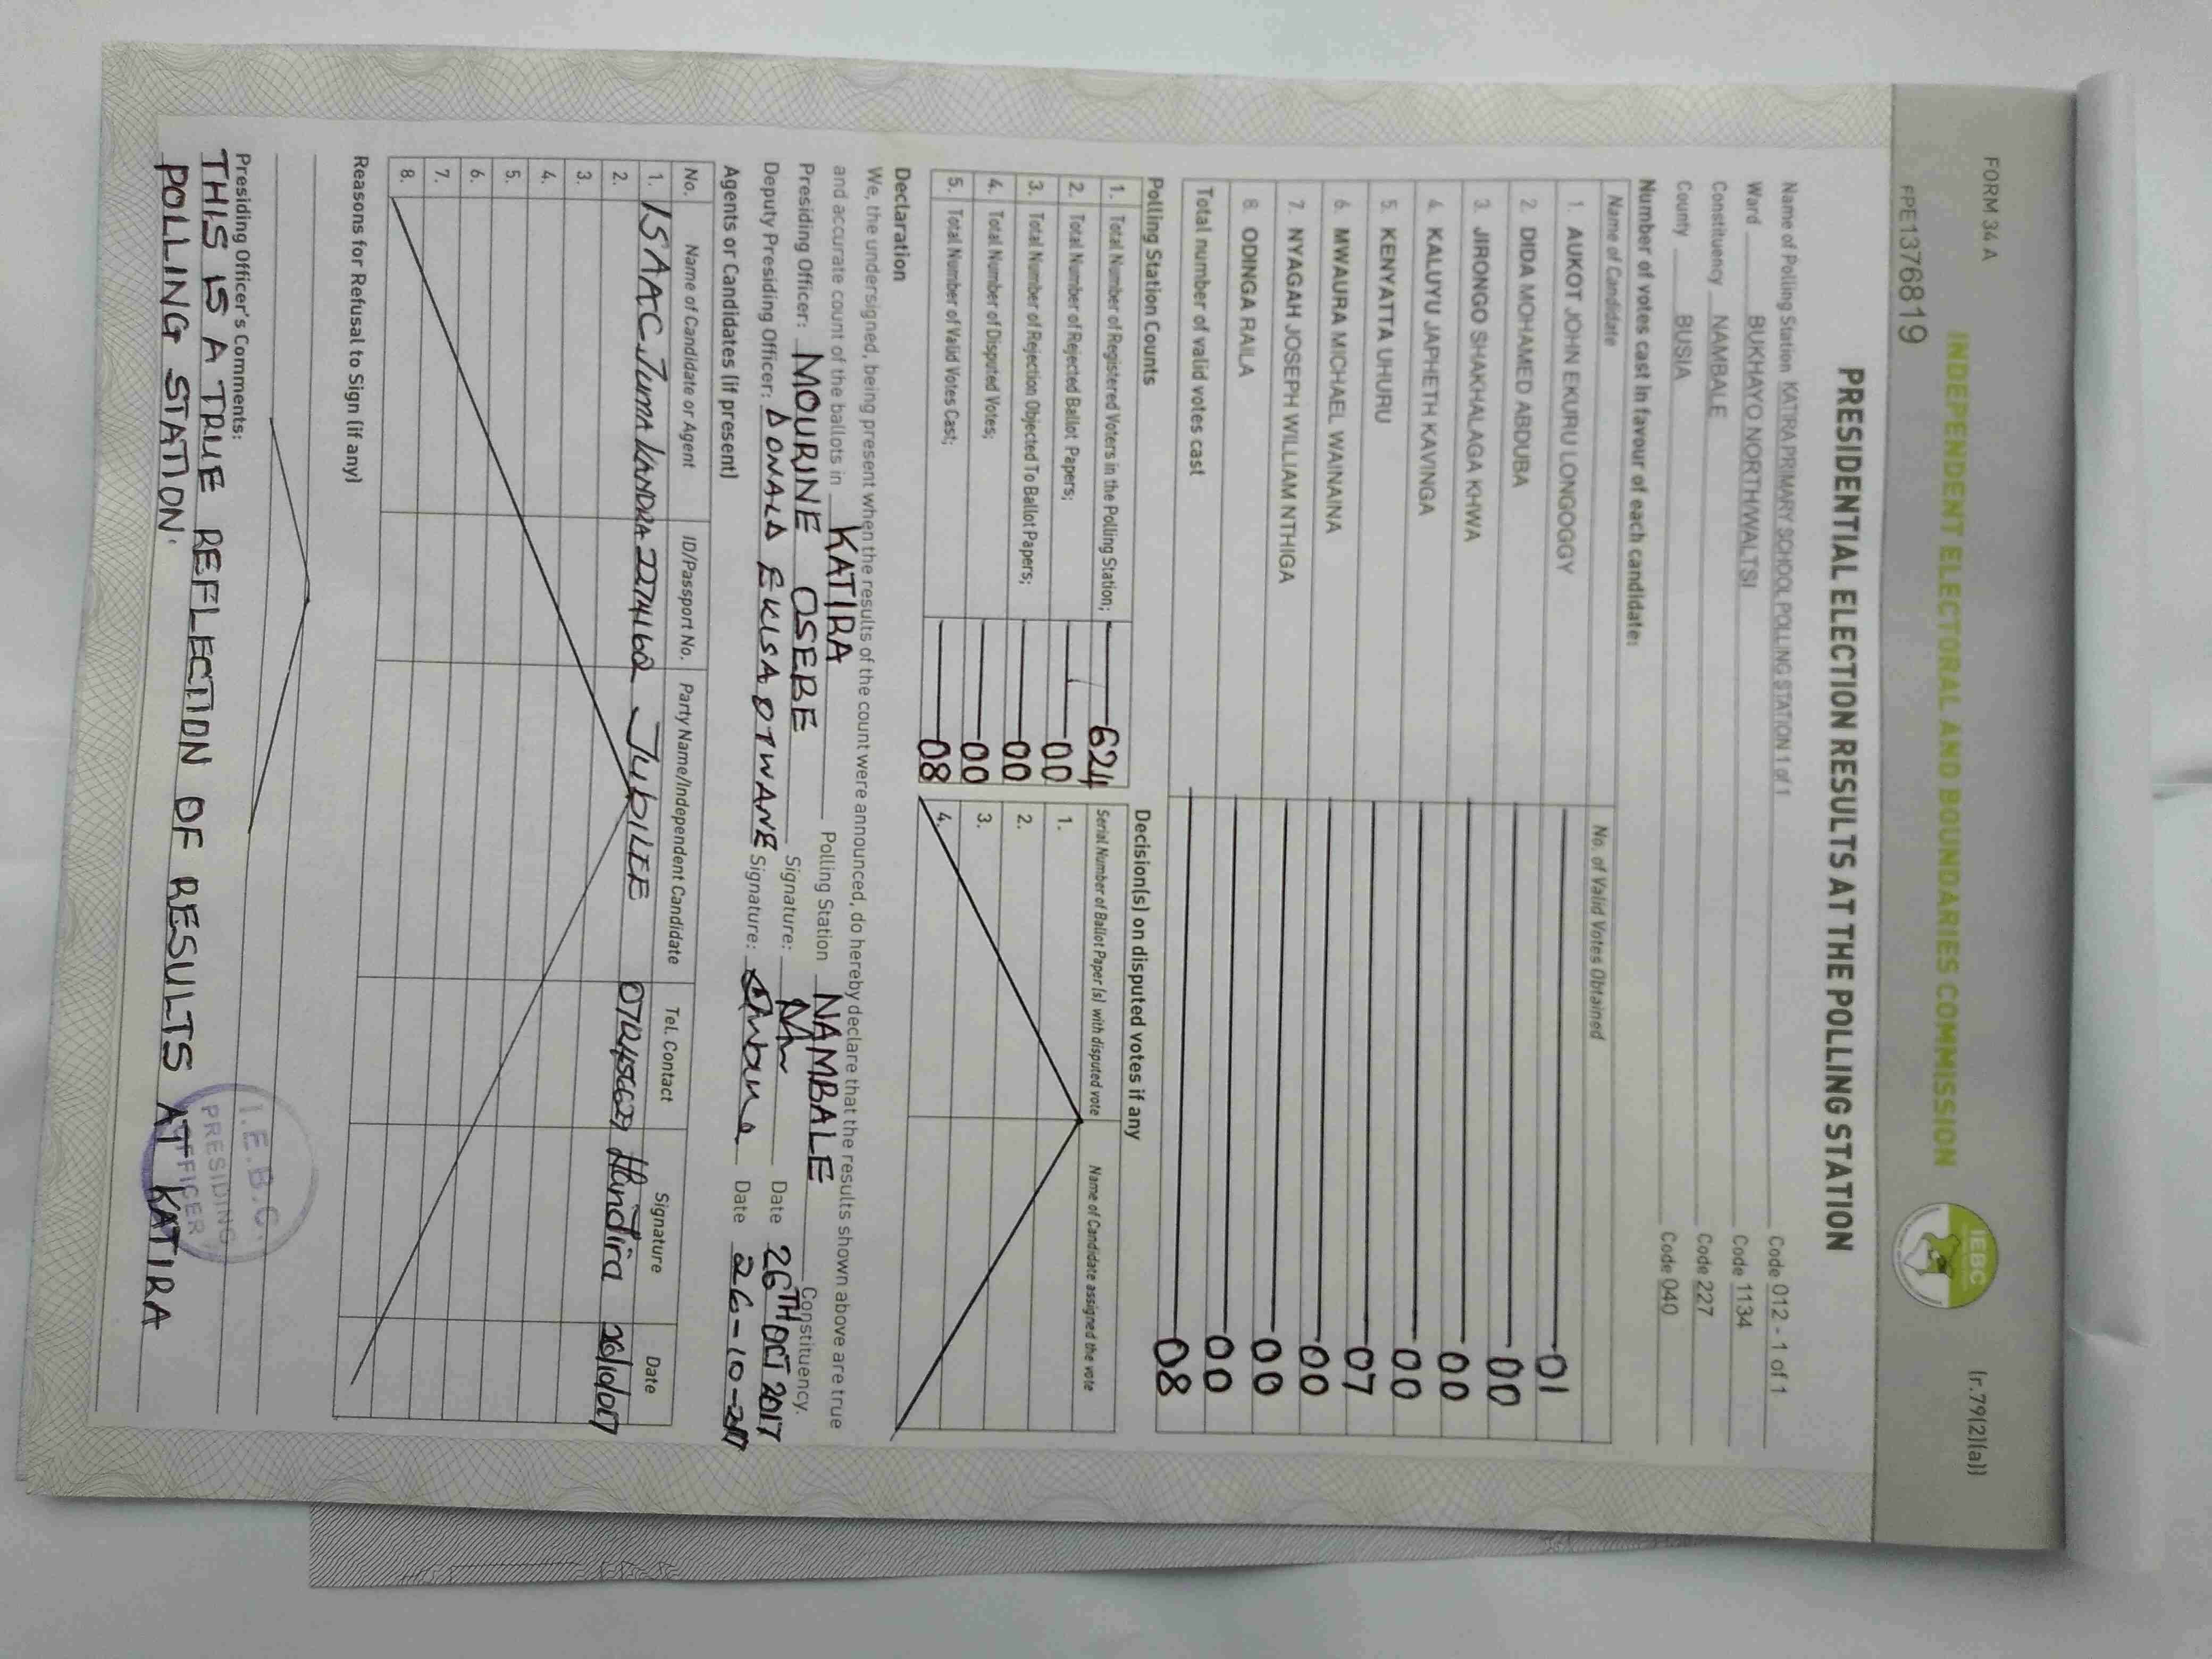 FORM 34 A
(r.79(2)(a))
FPE1376819
INDEPENDENT ELECTORAL AND BOUNDARIES COMMISSION
IEBC
PRESIDENTIAL ELECTION RESULTS AT THE POLLING STATION
Name of Polling Station KATRA PRIMARY SCHOOL POLLING STATION 1 of 1 Code 012 - 1 of 1
Ward BUKHAYO NORTH/WALTSI Code 1134
Constituency NAMBALE Code 227
County BUSIA Code 040
Number of votes cast in favour of each candidate:
Name of Candidate No. of Valid Votes Obtained
1. AUKOT JOHN EKURU LONGOGGY 01
2. DIDA MOHAMED ABDUBA 00
3. JIRONGO SHAKHALAGA KHWA 00
4. KALUYU JAPHETH KAVINGA 00
5. KENYATTA UHURU 07
6. MWAURA MICHAEL WAINAINA 00
7. NYAGAH JOSEPH WILLIAM NTHIGA 00
8. ODINGA RAILA 00
Total number of valid votes cast 08
Polling Station Counts
1. Total Number of Registered Voters in the Polling Station; 624
2. Total Number of Rejected Ballot Papers; 00
3. Total Number of Rejection Objected To Ballot Papers; 00
4. Total Number of Disputed Votes; 00
5. Total Number of Valid Votes Cast; 08
Decision(s) on disputed votes if any
Serial Number of Ballot Paper (s) with disputed vote Name of Candidate assigned the vote
1.
2.
3.
4.
Declaration
We, the undersigned, being present when the results of the count were announced, do hereby declare that the results shown above are true
and accurate count of the ballots in KATIRA Polling Station NAMBALE Constituency.
Presiding Officer: MOURINE OSEBE Signature: Date 26TH OCT 2017
Deputy Presiding Officer: DONALD EKISA OTWANE Signature: Date 26-10-2017
Agents or Candidates (if present)
No. Name of Candidate or Agent ID/Passport No. Party Name/Independent Candidate Tel. Contact Signature Date
1. ISAAC JUMA 2274162 JUBILEE
2.
3.
4.
5.
6.
7.
8.
Reasons for Refusal to Sign (if any)
Presiding Officer's Comments:
THIS IS A TRUE REFLECTION OF RESULTS AT KATIRA
POLLING STATION.
I.E.B.C.
PRESIDING
OFFICER